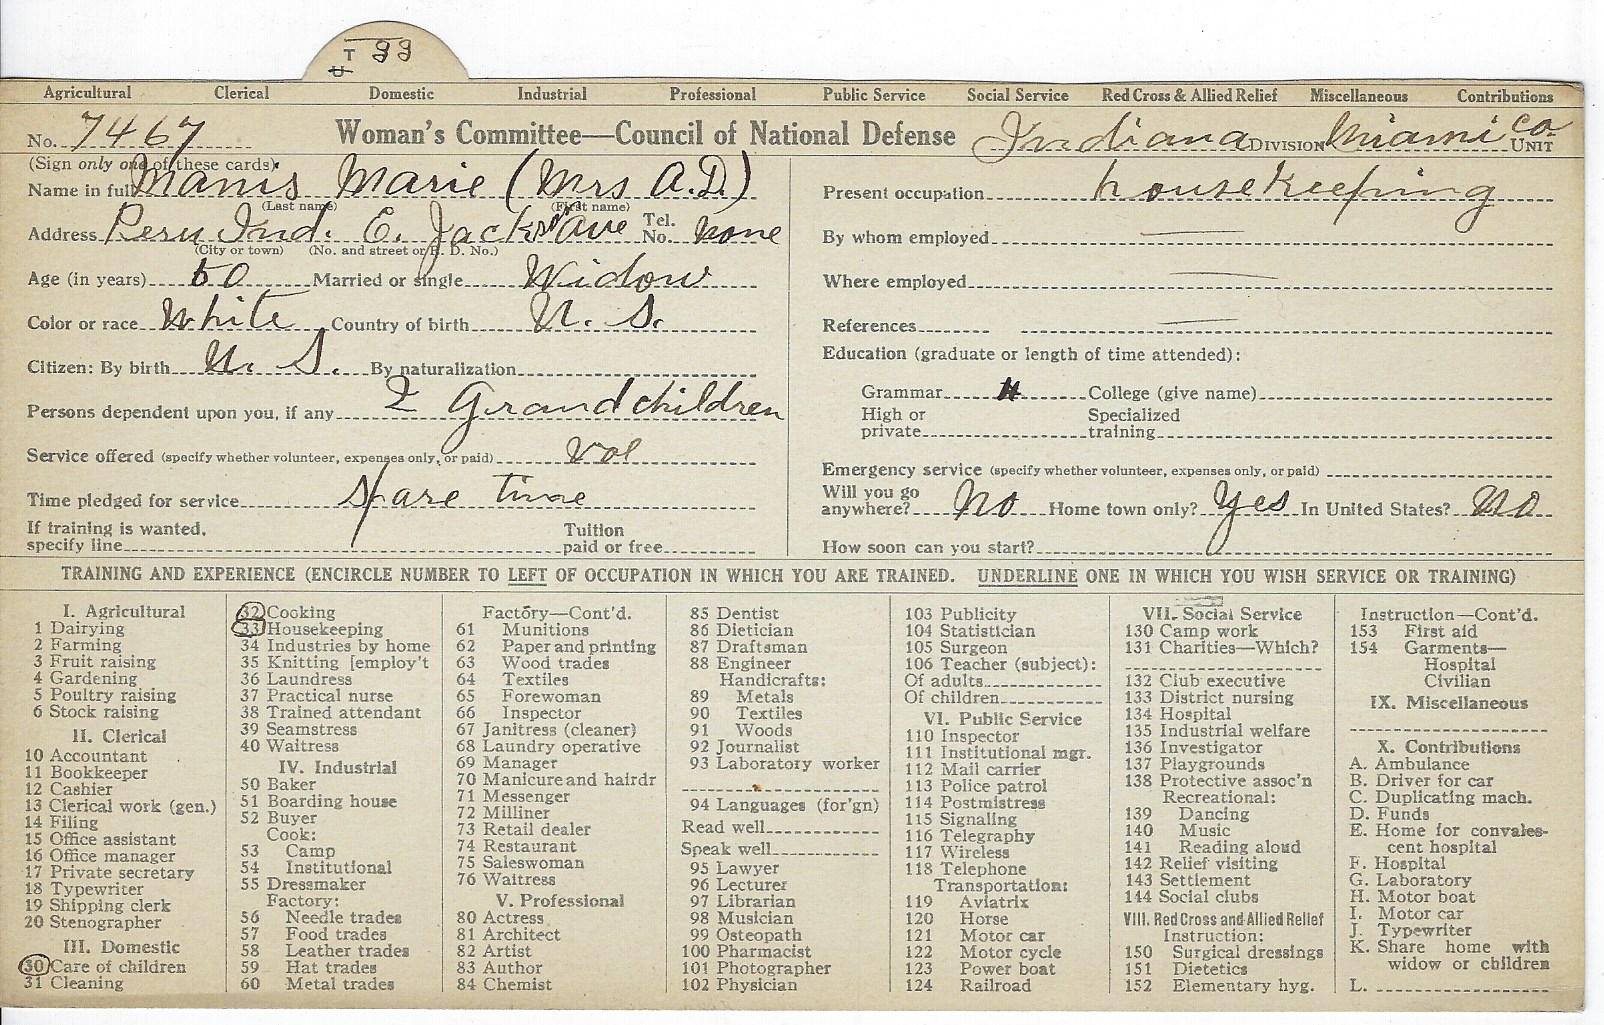 T 33
U
Agricultural Clerical Domestic Industrial Professional Public Service Social Service Red Cross & Allied Relief Miscellaneous Contributions
No. 7467 Woman's Committee—Council of National Defense Indiana DIVISION Miami Co. UNIT
(Sign only one of these cards)
Name in full Manis Marie (Mrs A.D.)
(Last name) (First name)
Address Peru Ind. E. Jackson Ave Tel. No. none
(City or town) (No. and street or R. D. No.)
Age (in years) 50 Married or single Widow
Color or race White Country of birth U. S.
Citizen: By birth U. S. By naturalization
Persons dependent upon you, if any 2 Grandchildren
Service offered (specify whether volunteer, expenses only, or paid) Vol
Time pledged for service spare time
If training is wanted, specify line Tuition paid or free
Present occupation housekeeping
By whom employed
Where employed
References
Education (graduate or length of time attended):
Grammar College (give name)
High or private Specialized training
Emergency service (specify whether volunteer, expenses only, or paid)
Will you go anywhere? No Home town only? Yes In United States? No
How soon can you start?
TRAINING AND EXPERIENCE (ENCIRCLE NUMBER TO LEFT OF OCCUPATION IN WHICH YOU ARE TRAINED. UNDERLINE ONE IN WHICH YOU WISH SERVICE OR TRAINING)
I. Agricultural
1 Dairying
2 Farming
3 Fruit raising
4 Gardening
5 Poultry raising
6 Stock raising
II. Clerical
10 Accountant
11 Bookkeeper
12 Cashier
13 Clerical work (gen.)
14 Filing
15 Office assistant
16 Office manager
17 Private secretary
18 Typewriter
19 Shipping clerk
20 Stenographer
III. Domestic
30 Care of children
31 Cleaning
32 Cooking
33 Housekeeping
34 Industries by home
35 Knitting [employ't
36 Laundress
37 Practical nurse
38 Trained attendant
39 Seamstress
40 Waitress
IV. Industrial
50 Baker
51 Boarding house
52 Buyer
Cook:
53 Camp
54 Institutional
55 Dressmaker
Factory:
56 Needle trades
57 Food trades
58 Leather trades
59 Hat trades
60 Metal trades
Factory—Cont'd.
61 Munitions
62 Paper and printing
63 Wood trades
64 Textiles
65 Forewoman
66 Inspector
67 Janitress (cleaner)
68 Laundry operative
69 Manager
70 Manicure and hairdr
71 Messenger
72 Milliner
73 Retail dealer
74 Restaurant
75 Saleswoman
76 Waitress
V. Professional
80 Actress
81 Architect
82 Artist
83 Author
84 Chemist
85 Dentist
86 Dietician
87 Draftsman
88 Engineer
Handicrafts:
89 Metals
90 Textiles
91 Woods
92 Journalist
93 Laboratory worker
94 Languages (for'gn)
Read well
Speak well
95 Lawyer
96 Lecturer
97 Librarian
98 Musician
99 Osteopath
100 Pharmacist
101 Photographer
102 Physician
103 Publicity
104 Statistician
105 Surgeon
106 Teacher (subject):
Of adults
Of children
VI. Public Service
110 Inspector
111 Institutional mgr.
112 Mail carrier
113 Police patrol
114 Postmistress
115 Signaling
116 Telegraphy
117 Wireless
118 Telephone
Transportation:
119 Aviatrix
120 Horse
121 Motor car
122 Motor cycle
123 Power boat
124 Railroad
VII. Social Service
130 Camp work
131 Charities—Which?
132 Club executive
133 District nursing
134 Hospital
135 Industrial welfare
136 Investigator
137 Playgrounds
138 Protective assoc'n
Recreational:
139 Dancing
140 Music
141 Reading aloud
142 Relief visiting
143 Settlement
144 Social clubs
VIII. Red Cross and Allied Relief
Instruction:
150 Surgical dressings
151 Dietetics
152 Elementary hyg.
Instruction—Cont'd.
153 First aid
154 Garments—
Hospital
Civilian
IX. Miscellaneous
X. Contributions
A. Ambulance
B. Driver for car
C. Duplicating mach.
D. Funds
E. Home for convales-
cent hospital
F. Hospital
G. Laboratory
H. Motor boat
I. Motor car
J. Typewriter
K. Share home with
widow or children
L.